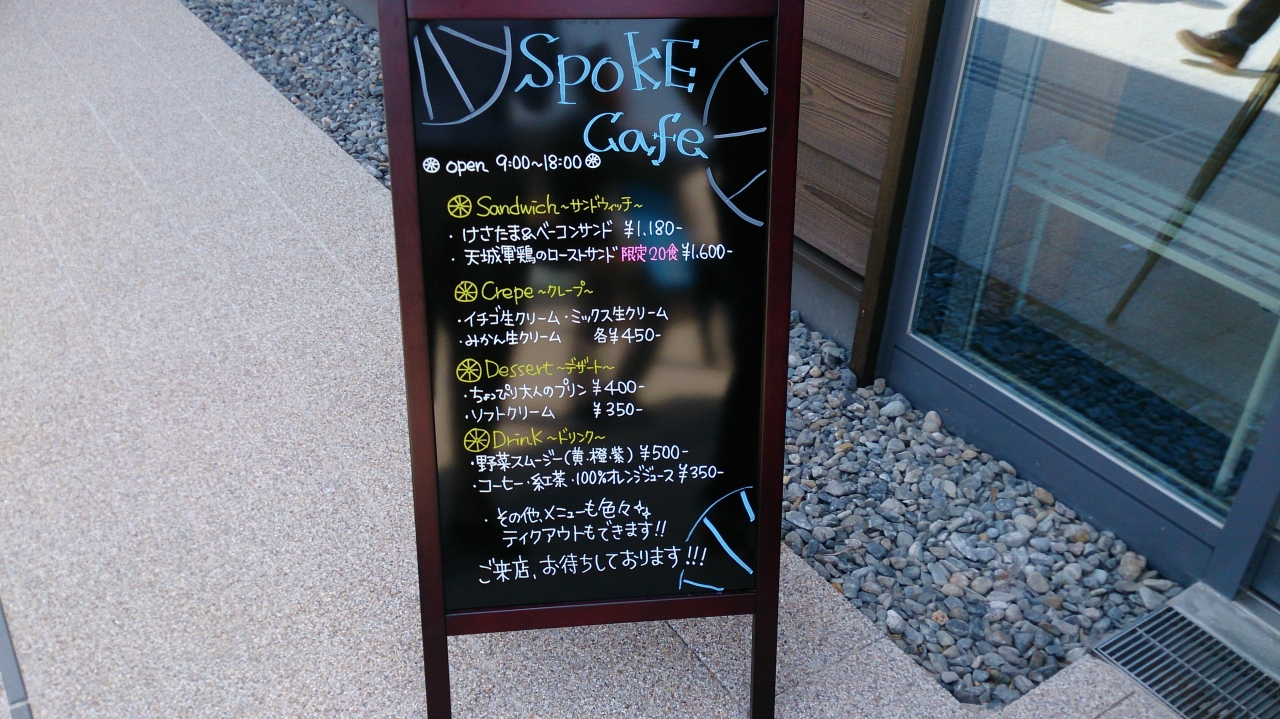 Spoke
Cafe
open 9:00~18:00
Sandwich ~サンドウィッチ~
・けさたま&ベーコンサンド ¥1,180-
・天城軍鶏のローストサンド 限定20食 ¥1,600-
Crepe ~クレープ~
・イチゴ生クリーム・ミックス生クリーム
・みかん生クリーム 各¥450-
Dessert ~デザート~
・ちょっぴり大人のプリン ¥400-
・ソフトクリーム ¥350-
Drink ~ドリンク~
・野菜スムージー(黄・橙・紫) ¥500-
・コーヒー・紅茶・100%オレンジジュース ¥350-
・その他、メニューも色々♪
テイクアウトもできます!!
ご来店、お待ちしております!!!